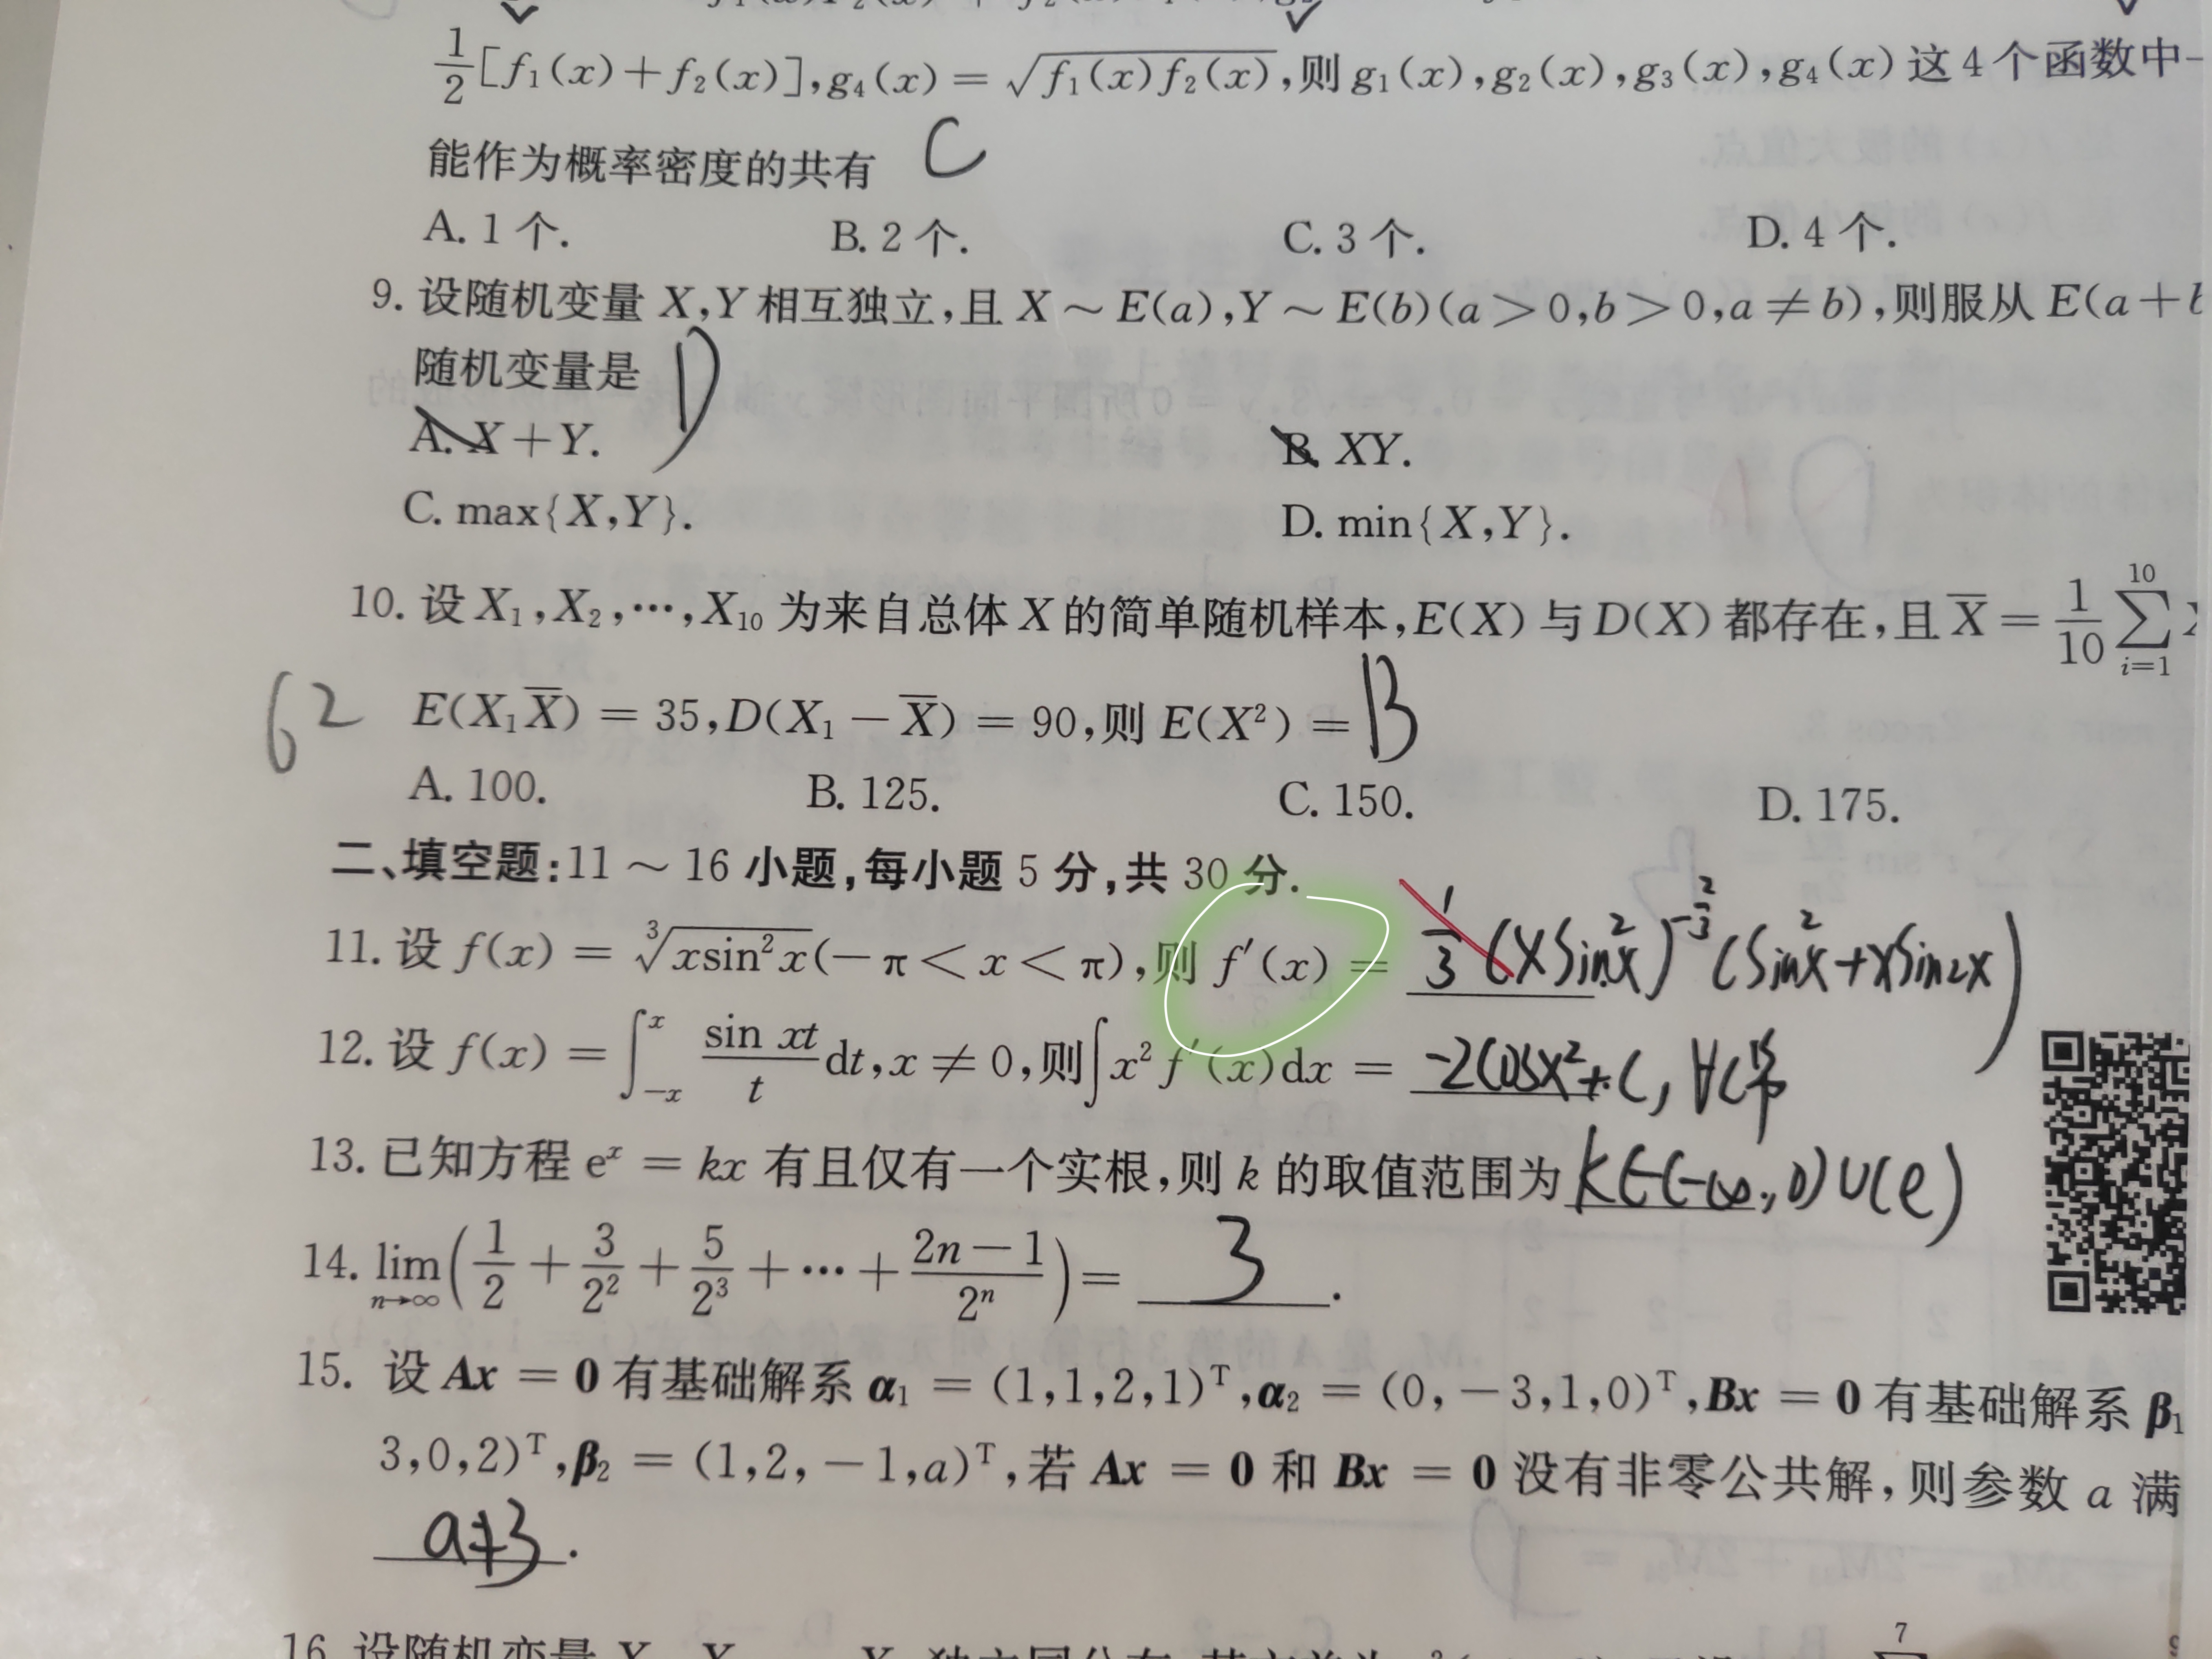 1/2[f₁(x)+f₂(x)],g₄(x)=√(f₁(x)f₂(x)),则g₁(x),g₂(x),g₃(x),g₄(x)这4个函数中一
能作为概率密度的共有 C
A. 1个. B. 2个. C. 3个. D. 4个.
9. 设随机变量X,Y相互独立,且X～E(a),Y～E(b)(a>0,b>0,a≠b),则服从E(a+b
随机变量是 D
A. X+Y. B. XY.
C. max{X,Y}. D. min{X,Y}.
10. 设X₁,X₂,⋯,X₁₀为来自总体X的简单随机样本,E(X)与D(X)都存在,且X̄=1/10 ∑_{i=1}^{10}
62 E(X₁X̄)=35,D(X₁-X̄)=90,则E(X²)= B
A. 100. B. 125. C. 150. D. 175.
二、填空题:11～16小题,每小题5分,共30分.
11. 设f(x)=∛(xsin²x)(-π<x<π),则f′(x)= 1/3(xsin²x)^{-2/3}(sin²x+xsin2x)
12. 设f(x)=∫_{-x}^{x} (sin xt)/t dt,x≠0,则∫x²f′(x)dx= -2cosx²+C,
13. 已知方程eˣ=kx有且仅有一个实根,则k的取值范围为 k∈(-∞,0)∪(e)
14. lim_{n→∞}(1/2+3/2²+5/2³+⋯+(2n-1)/2ⁿ)= 3 .
15. 设Ax=0有基础解系α₁=(1,1,2,1)ᵀ,α₂=(0,-3,1,0)ᵀ,Bx=0有基础解系β₁
3,0,2)ᵀ,β₂=(1,2,-1,a)ᵀ,若Ax=0和Bx=0没有非零公共解,则参数a满
a≠3 .